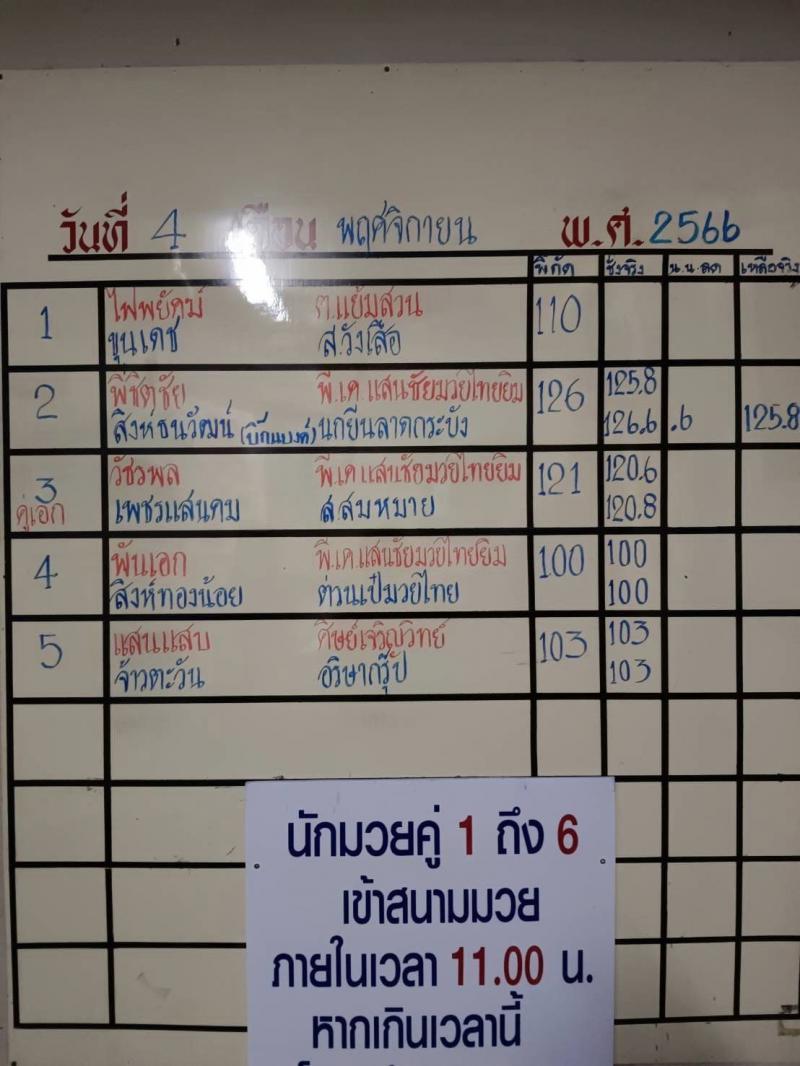 วันที่ 4 เดือน พฤศจิกายน พ.ศ. 2566
พิกัด ชั่งจริง น.น.ลด เหลือจริง
1 ไฟพยัคฆ์ ต.แย้มสวน 110
ขุนเดช ส.วังเสือ
2 พิชิตชัย พี.เค.แสนชัยมวยไทยยิม 126 125.8
สิงห์ธนวัฒน์ นกยีนลาดกระบัง 126.6 .6 125.8
3 วัชรพล พี.เค.แสนชัยมวยไทยยิม 121 120.6
คู่เอก เพชรแสนคม ส.สมหมาย 120.8
4 พันเอก พี.เค.แสนชัยมวยไทยยิม 100 100
สิงห์ทองน้อย ต่วนเป๋มวยไทย 100
5 แสนแสบ ศิษย์เจริญวิทย์ 103 103
จ้าวตะวัน อริษากรุ๊ป 103
นักมวยคู่ 1 ถึง 6
เข้าสนามมวย
ภายในเวลา 11.00 น.
หากเกินเวลานี้